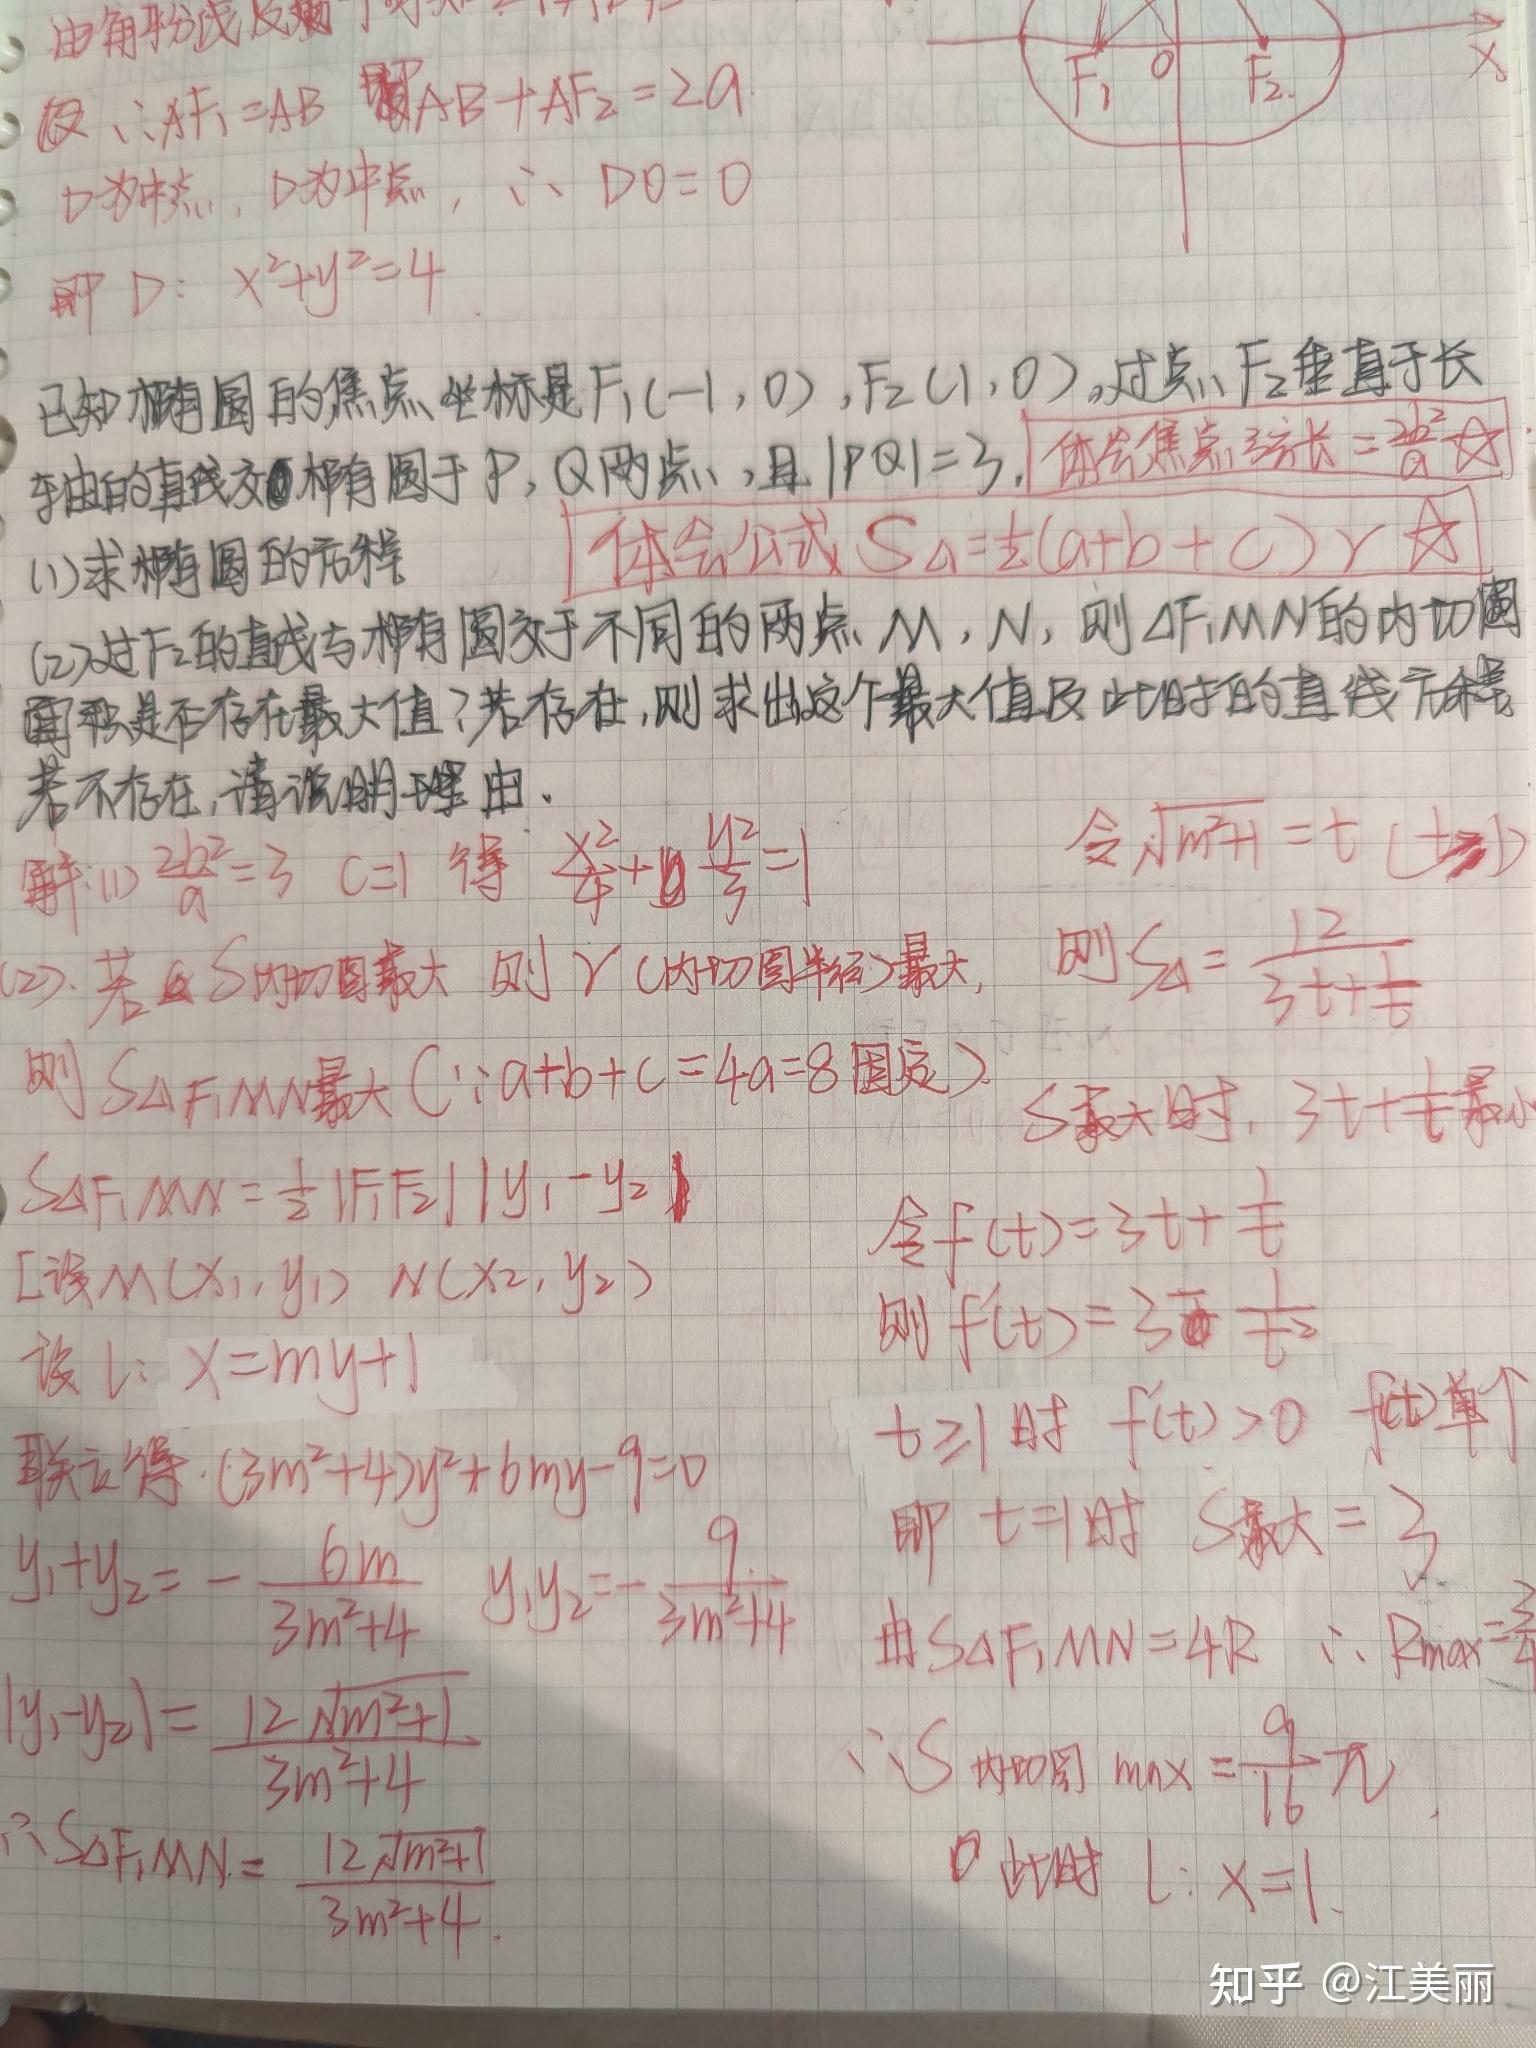 由角平分线及
∴AF₁=AB 即AB+AF₂=2a
D为中点, D为中点, ∴ DO=0
即 D: x²+y²=4
F₁ O F₂ x
已知椭圆的焦点坐标是F₁(-1,0),F₂(1,0),过点F₂垂直于长
轴的直线交椭圆于P,Q两点,且|PQ|=3.
体会焦点弦长=2b²/a ☆
体会公式 S△=½(a+b+c)r ☆
(1)求椭圆的方程
(2)过F₂的直线与椭圆交于不同的两点M,N,则△F₁MN的内切圆
面积是否存在最大值?若存在,则求出这个最大值及此时的直线方程
若不存在,请说明理由.
解:(1) 2b²/a=3 c=1 得 x²/4+y²/3=1
(2).若S内切圆最大 则r(内切圆半径)最大,
则S△F₁MN最大(∵a+b+c=4a=8固定).
S△F₁MN=½|F₁F₂||y₁-y₂|
[设M(x₁,y₁) N(x₂,y₂)
设 l: x=my+1
联立得.(3m²+4)y²+6my-9=0
y₁+y₂=-6m/(3m²+4) y₁y₂=-9/(3m²+4)
|y₁-y₂|=12√(m²+1)/(3m²+4)
∴S△F₁MN=12√(m²+1)/(3m²+4).
令√(m²+1)=t (t≥1)
则S△=12/(3t+1/t)
S最大时, 3t+1/t最小
令f(t)=3t+1/t
则f'(t)=3-1/t²
t≥1时 f'(t)>0 f(t)单个
即 t=1时 S最大=3
由S△F₁MN=4R ∴Rmax=3/4
∴S内切圆 max=9/16π.
此时 l: x=1.
知乎 @江美丽